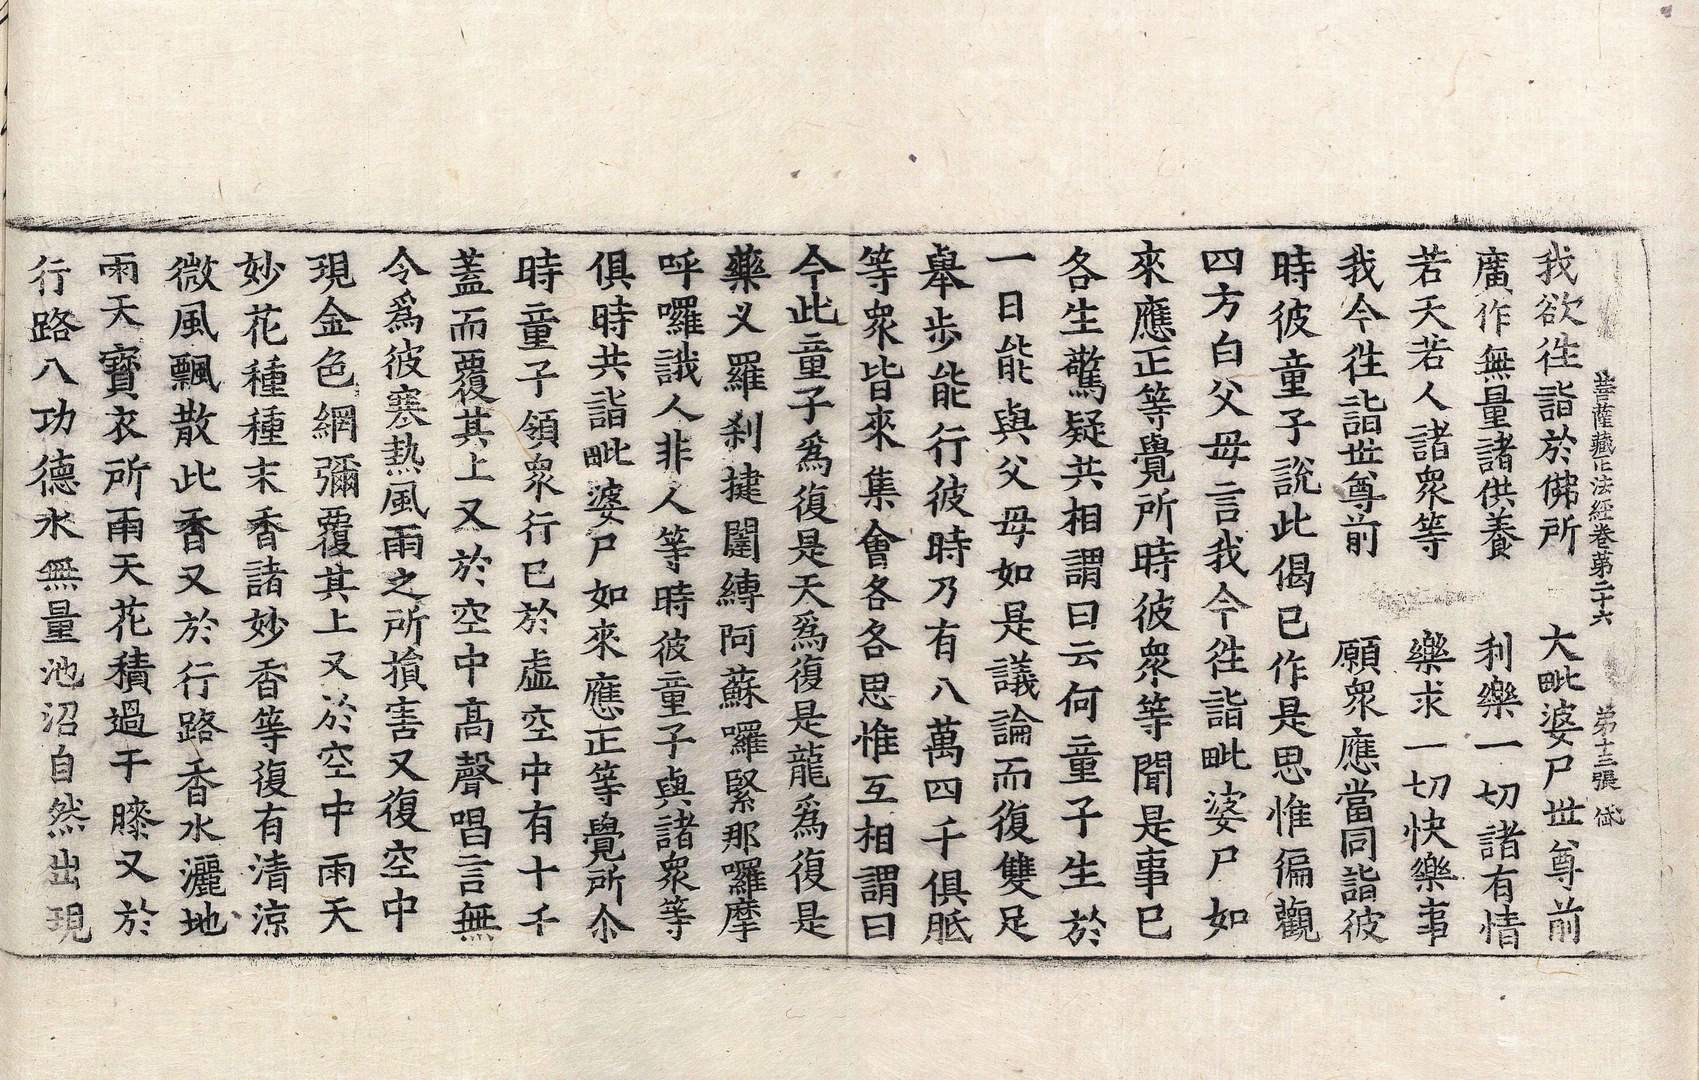 菩薩藏正法經卷第二十六 第十三張 岱
我欲徃詣於佛所 大毗婆尸世尊前
廣作無量諸供養 利樂一切諸有情
若天若人諸衆等 樂求一切快樂事
我今徃詣世尊前 願衆應當同詣彼
時彼童子說此偈已作是思惟徧觀
四方白父母言我今徃詣毗婆尸如
來應正等覺所時彼衆等聞是事已
各生驚疑共相謂曰云何童子生於
一日能與父母如是議論而復雙足
舉步能行彼時乃有八萬四千俱胝
等衆皆來集會各各思惟互相謂曰
今此童子爲復是天爲復是龍爲復是
藥叉羅刹揵闥縛阿蘇囉緊那囉摩
呼囉誐人非人等時彼童子與諸衆等
俱時共詣毗婆尸如來應正等覺所尒
時童子領衆行已於虛空中有十千
蓋而覆其上又於空中高聲唱言無
令爲彼寒熱風雨之所損害又復空中
現金色網彌覆其上又於空中雨天
妙花種種末香諸妙香等復有清涼
微風飄散此香又於行路香水灑地
雨天寶衣所雨天花積過于膝又於
行路八功德水無量池沼自然出現